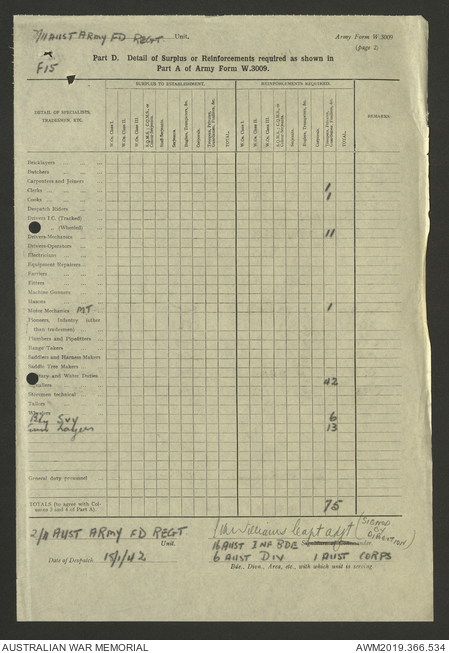 2/11 AUST ARMY FD REGT Unit.
Army Form W.3009
(page 2)
F15
Part D. Detail of Surplus or Reinforcements required as shown in
Part A of Army Form W.3009.
SURPLUS TO ESTABLISHMENT.
REINFORCEMENTS REQUIRED.
DETAIL OF SPECIALISTS,
TRADESMEN, ETC.
W.Os. Class I.
W.Os. Class II.
W.Os. Class III.
Staff Serjeants.
Serjeants.
Corporals.
TOTAL.
W.Os. Class I.
W.Os. Class II.
W.Os. Class III.
Serjeants.
Corporals.
TOTAL.
REMARKS.
Bricklayers
Butchers
Carpenters and Joiners
Clerks 1
Cooks 1
Despatch Riders
Drivers I.C. (Tracked)
(Wheeled)
Drivers-Mechanics 11
Drivers-Operators
Electricians
Equipment Repairers
Farriers
Fitters
Machine Gunners
Masons
Motor Mechanics MT 1
Pioneers, Infantry (other
than tradesmen)
Plumbers and Pipefitters
Range Takers
Saddlers and Harness Makers
Saddle Tree Makers
and Water Duties
42
Storemen technical
Tailors
Wheelers
Bty Svy 6
Gun Layers 13
General duty personnel
TOTALS (to agree with Col-
umns 3 and 4 of Part A). 75
2/11 AUST ARMY FD REGT Unit.
Capt Adjt (SIGNED
BY
DIRECTION)
16 AUST INF BDE
Date of Despatch 15/1/42
6 AUST DIV 1 AUST CORPS
Bde., Divn., Area, etc., with which unit is serving
AUSTRALIAN WAR MEMORIAL
AWM2019.366.534